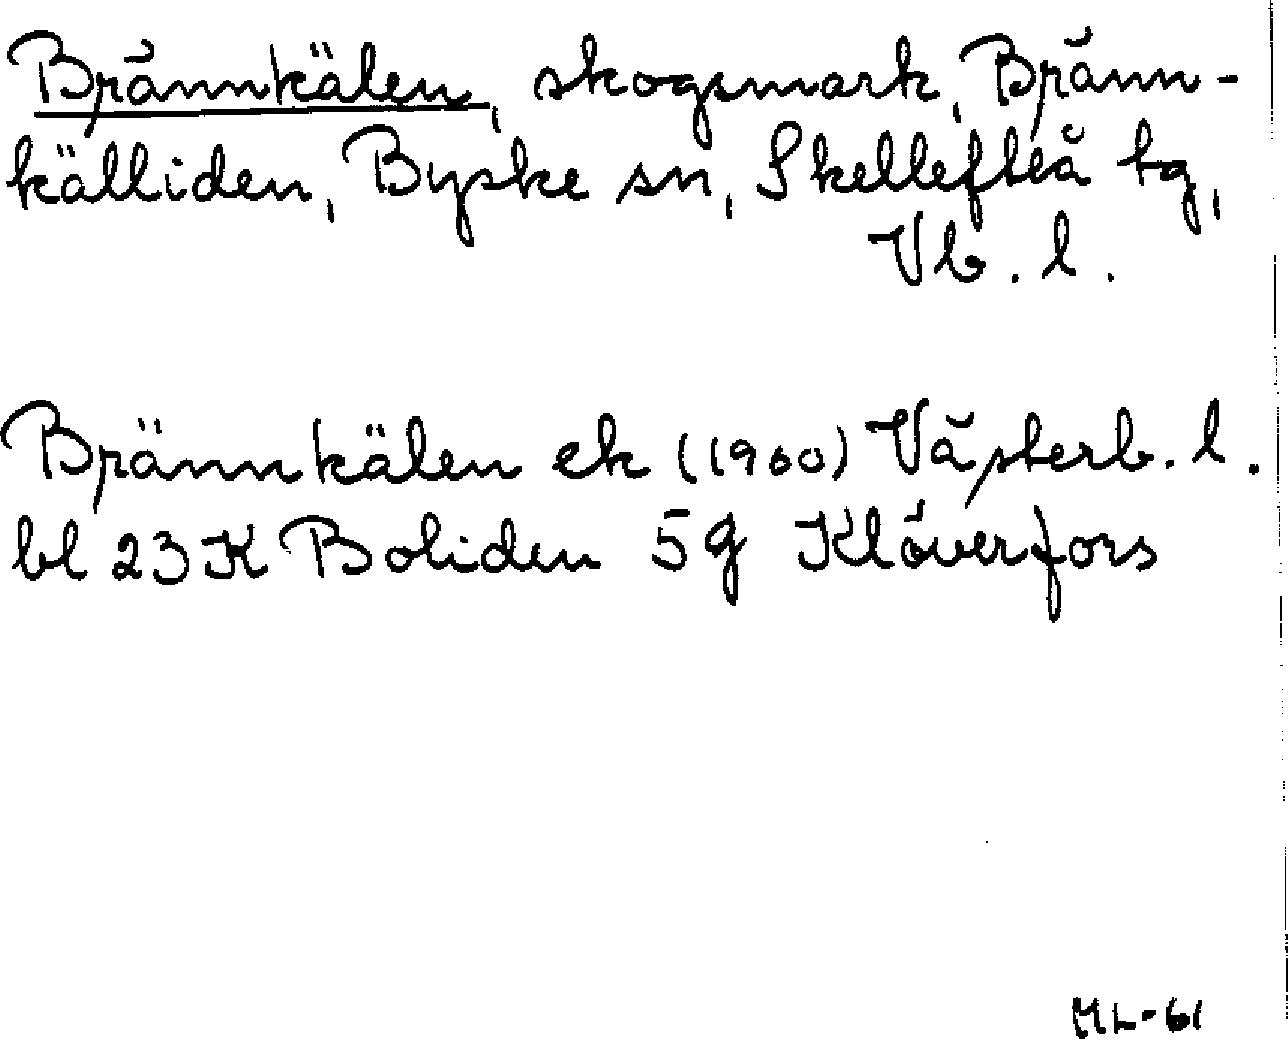 Brännkälen, skogsmark, Bränn-
källiden, Byske sn, Skellefteå tg,
Vb. l.
Brännkälen ek (1960) Västerb. l.
bl 23 K Boliden 5g Klöverfors
ML-61